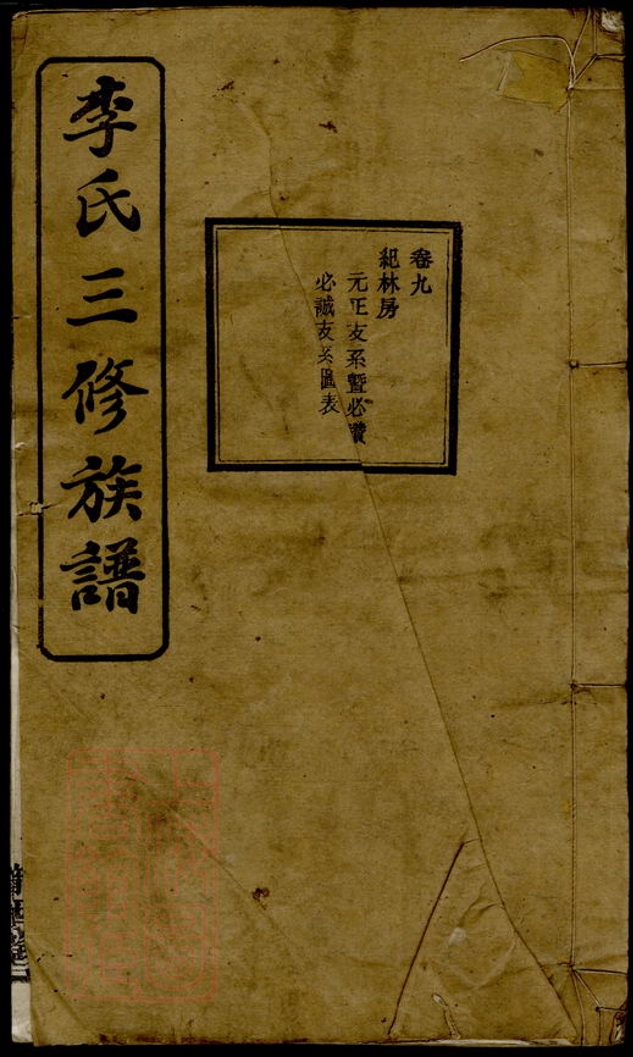 李氏三修族譜
卷九
紀林房
元正友系暨必讚
必誠友系匯表